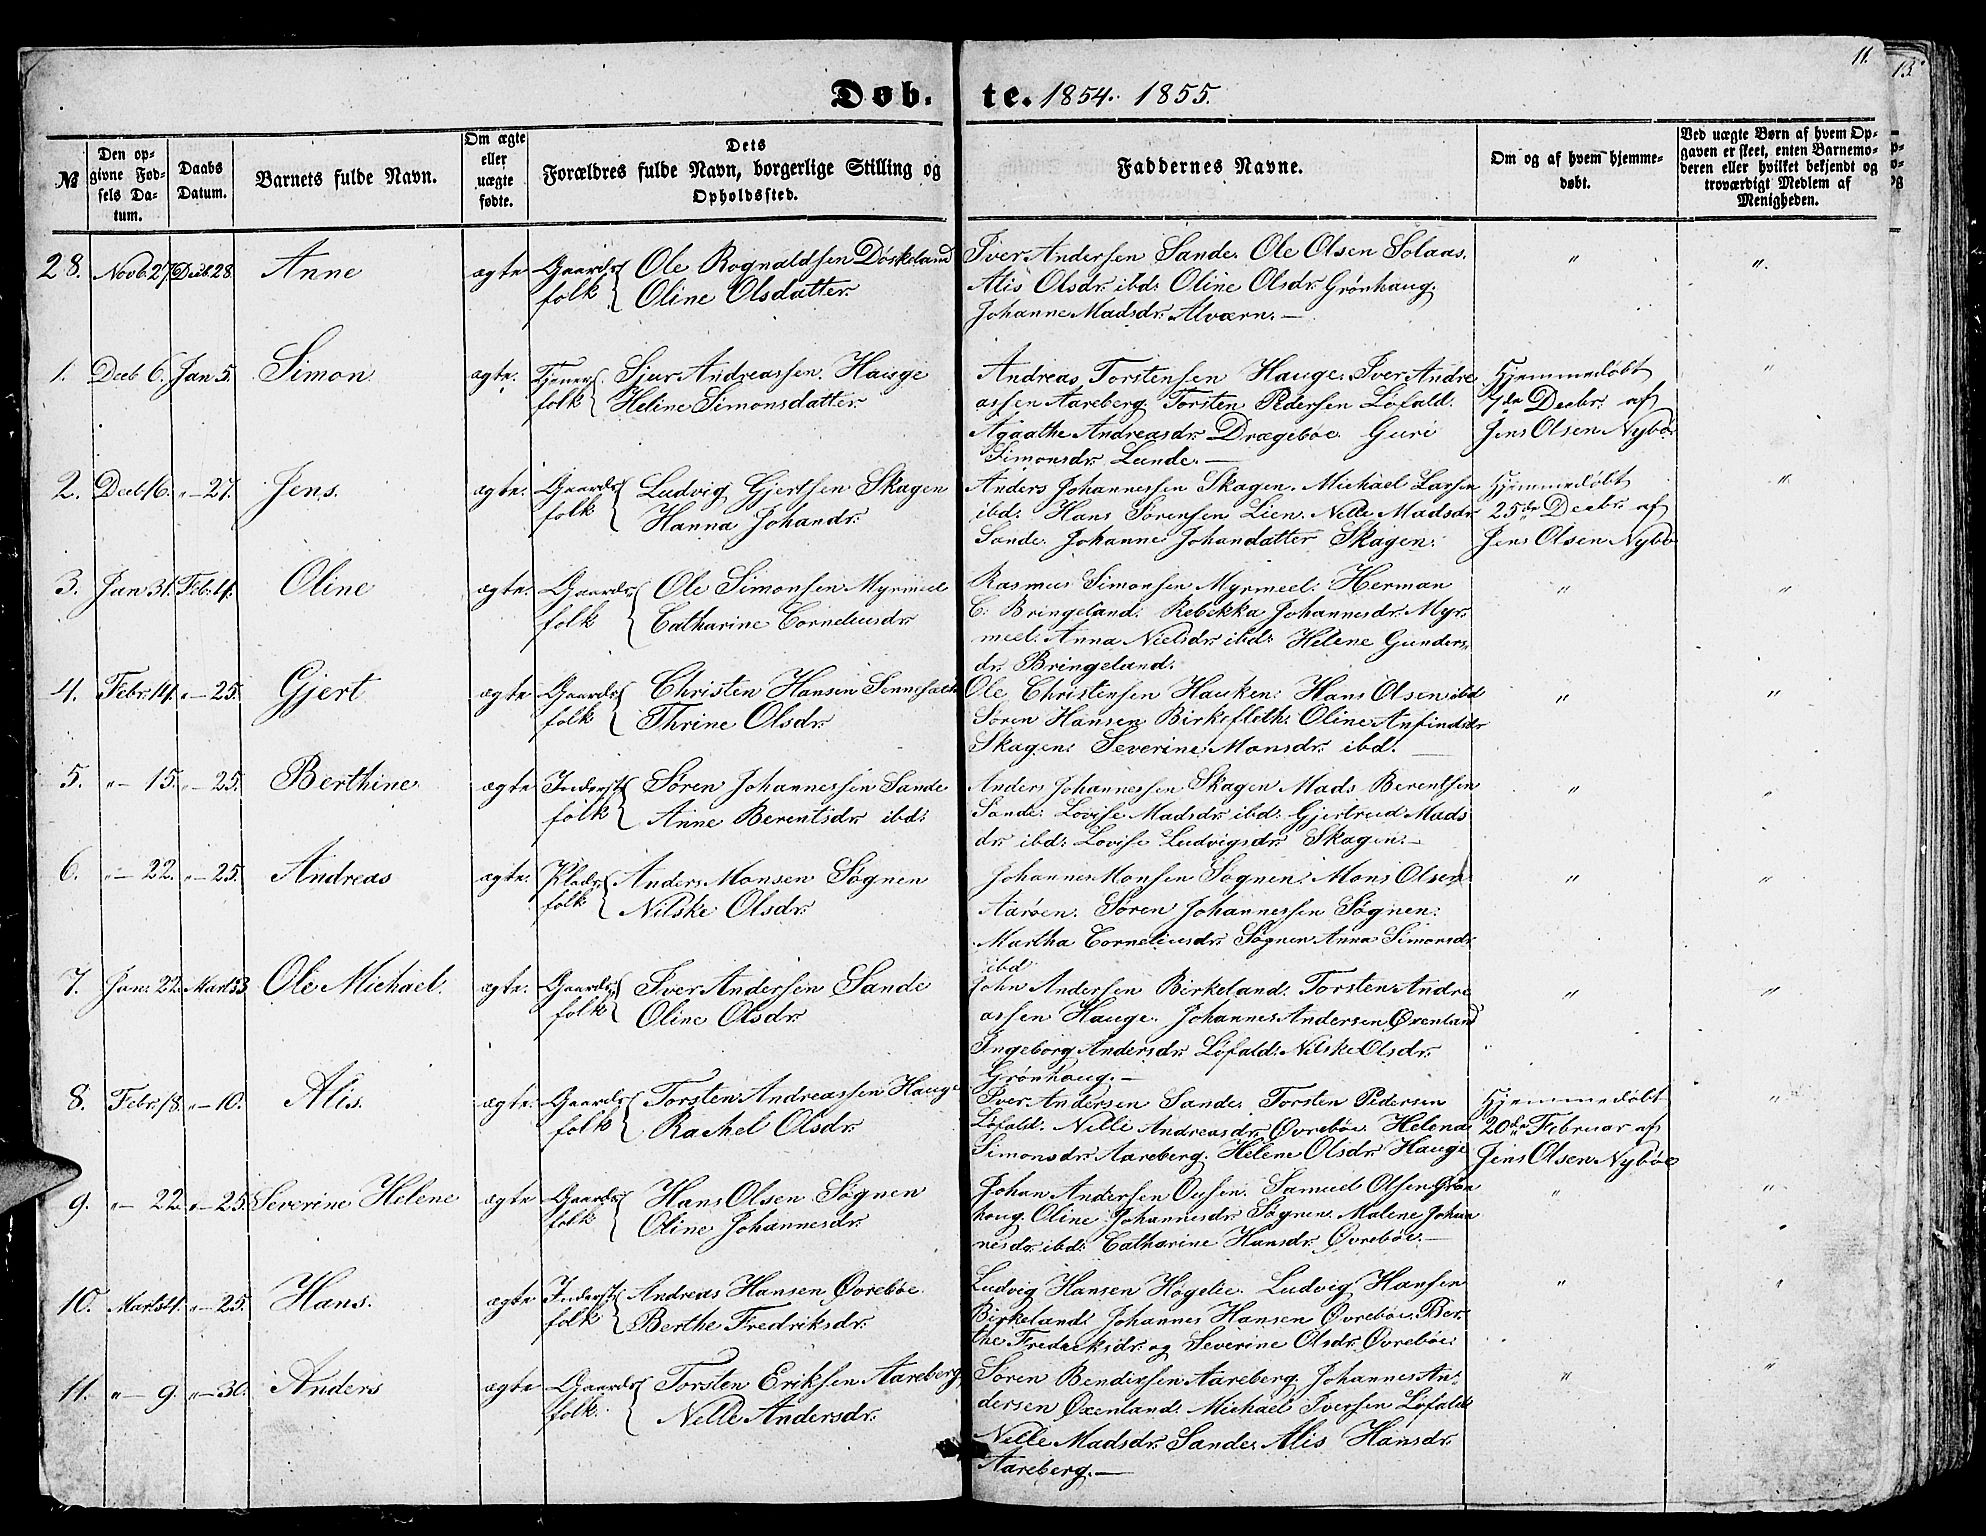 11.
13.
Døb. te. 1854. 1855.
№
Den op-
givne Fød-
sels Da-
tum.
Daabs
Datum.
Barnets fulde Navn.
Om ægte
eller
uægte
fødte.
Dets
Forældres fulde Navn, borgerlige Stilling og
Opholdssted.
Faddernes Navne.
Om og af hvem hjemme-
døbt.
Ved uægte Børn af hvem Op-
gaven er skeet, enten Barnemo-
deren eller hvilket bekjendt og
troværdigt Medlem af
Menigheden.
28. Novb. 27. Decb. 28. Anne ægte Gaard- Ole Rognaldsen Döskeland
folk Oline Olsdatter.
Iver Andersen Sande. Ole Olsen Solaas.
Alis Olsdr. ibd: Oline Olsdr. Grönhaug.
Johanne Madsdr. Alværn. —
1. Decb 6. Jan 5. Simon. ægte. Tjener- Sjur Andreassen. Hauge
folk Heline Simonsdatter.
Andreas Torstensen Hauge. Iver Andre
assen Aareberg. Torsten Pedersen Löfald.
Agaathe Andreasdr. Drægeböe. Guri
Simonsdr. Lunde. —
Hjemmedöbt
7de Decbr. af
Jens Olsen Nybö
2. Decb. 16. "— 27. Jens. ægte. Gaard- Ludvig Gjertsen Skagen
folk Hanna Johandr.
Anders Johannessen Skagen. Michael Larsen
ibd: Hans Sörensen Lien. Nille Madsdr.
Sande. Johanne Johandatter Skagen.
Hjemmedöbt
25de Decbr. af
Jens Olsen Nybö
3. Jan 31. Feb. 11. Oline ægte. Gaard- Ole Simonsen Myrmeel
folk Catharine Corneliusdr.
Rasmus Simonsen Myrmeel. Herman
C: Bringeland. Rebekka Johannesdr. Myr-
meel. Anna Nielsdr. ibd: Helene Gunders-
dr. Bringeland.
4. Febr. 14. "— 25. Gjert ægte Gaard- Christen Hansen
folk Thrine Olsdr.
Ole Christensen Hauken: Hans Olsen ibd
Sören Hansen Birkefloth: Oline Anfindsdr
Skagen: Severine Monsdr. ibd. —
5. "— 15. "— 25. Berthine ægte Inderst- Sören Johannessen Sande
folk Anne Berentsdr. ibd:
Anders Johannessen Skagen Mads Berentsen
Sande. Lovise Madsdr. ibd: Gjertrud Mads
dr. ibd: Lovise Ludvigsdr. Skagen. —
6. "— 22. "— 25. Andreas ægte. Plads- Anders Monsen Sögnen
folk Nilske Olsdr.
Johannes Monsen Sögnen. Mons Olsen
Aaröen. Sören Johannessen Sögnen:
Martha Corneliusdr. Sögnen Anna Simonsdr.
ibd
7. Jan: 22. Marts 3. Ole Michael. ægte. Gaard- Iver Andersen Sande
folk Oline Olsdr.
John Andersen Birkeland. Torsten Andre
assen Hauge. Johannes Andersen Øxenland
Ingeborg Andersdr. Löfald: Nilske Olsdr.
Grönhaug. —
8. Febr. 18. "— 10. Alis. ægte. Gaard- Torsten Andreassen Hauge
folk Rachel Olsdr.
Iver Andersen Sande. Torsten Pedersen
Löfald. Nilli Andreasdr. Øvreböe. Helena
Simonsdr. Aareberg. Helene Olsdr. Hauge
Hjemmedöbt
20de Februar af
Jens Olsen Nyböe
9. "— 22. "— 25. Severine Helene ægte Gaard- Hans Olsen Sögnen
folk Oline Johannesdr.
Johan Andersen Ousen. Samuel Olsen Grön
houg. Oline Johannesdr. Sögnen. Malene Johan
nesdr. ibd: Catharine Hansdr. Øvreböe. —
10. Marts 4. "— 25. Hans. ægte Inderst- Andreas Hansen Øvreböe
folk Berthe Fredriksdr.
Ludvig Hansen Högelie. Ludvig Hansen
Birkeland: Johannes Hansen Øvreböe. Ber-
the Fredricksdr. og Severine Olsdr. Øvreböe.
11. "— 9. "— 30. Anders ægte Gaard- Torsten Eriksen Aareberg,
folk. Nelle Andersdr.
Sören Bendixsen Aareberg. Johannes An-
dersen Øxenland. Michael Iversen Löfald:
Nille Madsdr. Sande. Alis Hansdr.
Aareberg. —